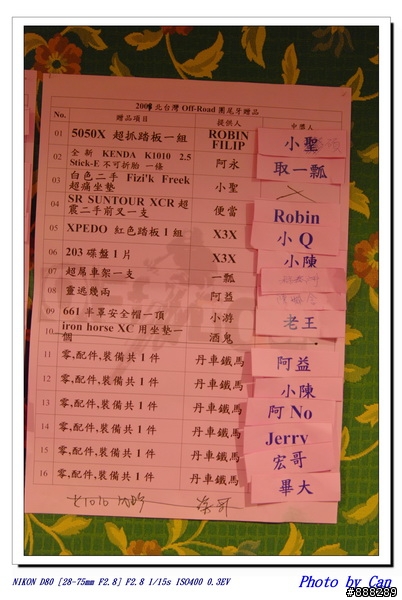 2008 北台灣 Off-Road 團尾牙贈品
No. 贈品項目 提供人 中獎人
01 5050X 超抓踏板一組 ROBIN FILIP 小聖
02 全新 KENDA K1010 2.5 Stick-E 不可折胎 一條 阿永 取一瓢
03 白色二手 Fizi'k Freek 超痛坐墊 小聖
04 SR SUNTOUR XCR 超震二手前叉一支 便當 Robin
05 XPEDO 紅色踏板 1 組 X3X 小 Q
06 203 碟盤 1 片 X3X 小陳
07 超屌車架一支 一瓢
08 靈逃幾兩 阿益
09 661 半罩安全帽一頂 小游 老王
10 iron horse XC 用坐墊一個 酒鬼
11 零,配件,裝備共 1 件 丹車鐵馬 阿益
12 零,配件,裝備共 1 件 丹車鐵馬 小陳
13 零,配件,裝備共 1 件 丹車鐵馬 阿 No
14 零,配件,裝備共 1 件 丹車鐵馬 Jerry
15 零,配件,裝備共 1 件 丹車鐵馬 宏哥
16 零,配件,裝備共 1 件 丹車鐵馬 畢大
K1010
NIKON D80 [28-75mm F2.8] F2.8 1/15s ISO400 0.3EV
Photo by Can
#888289